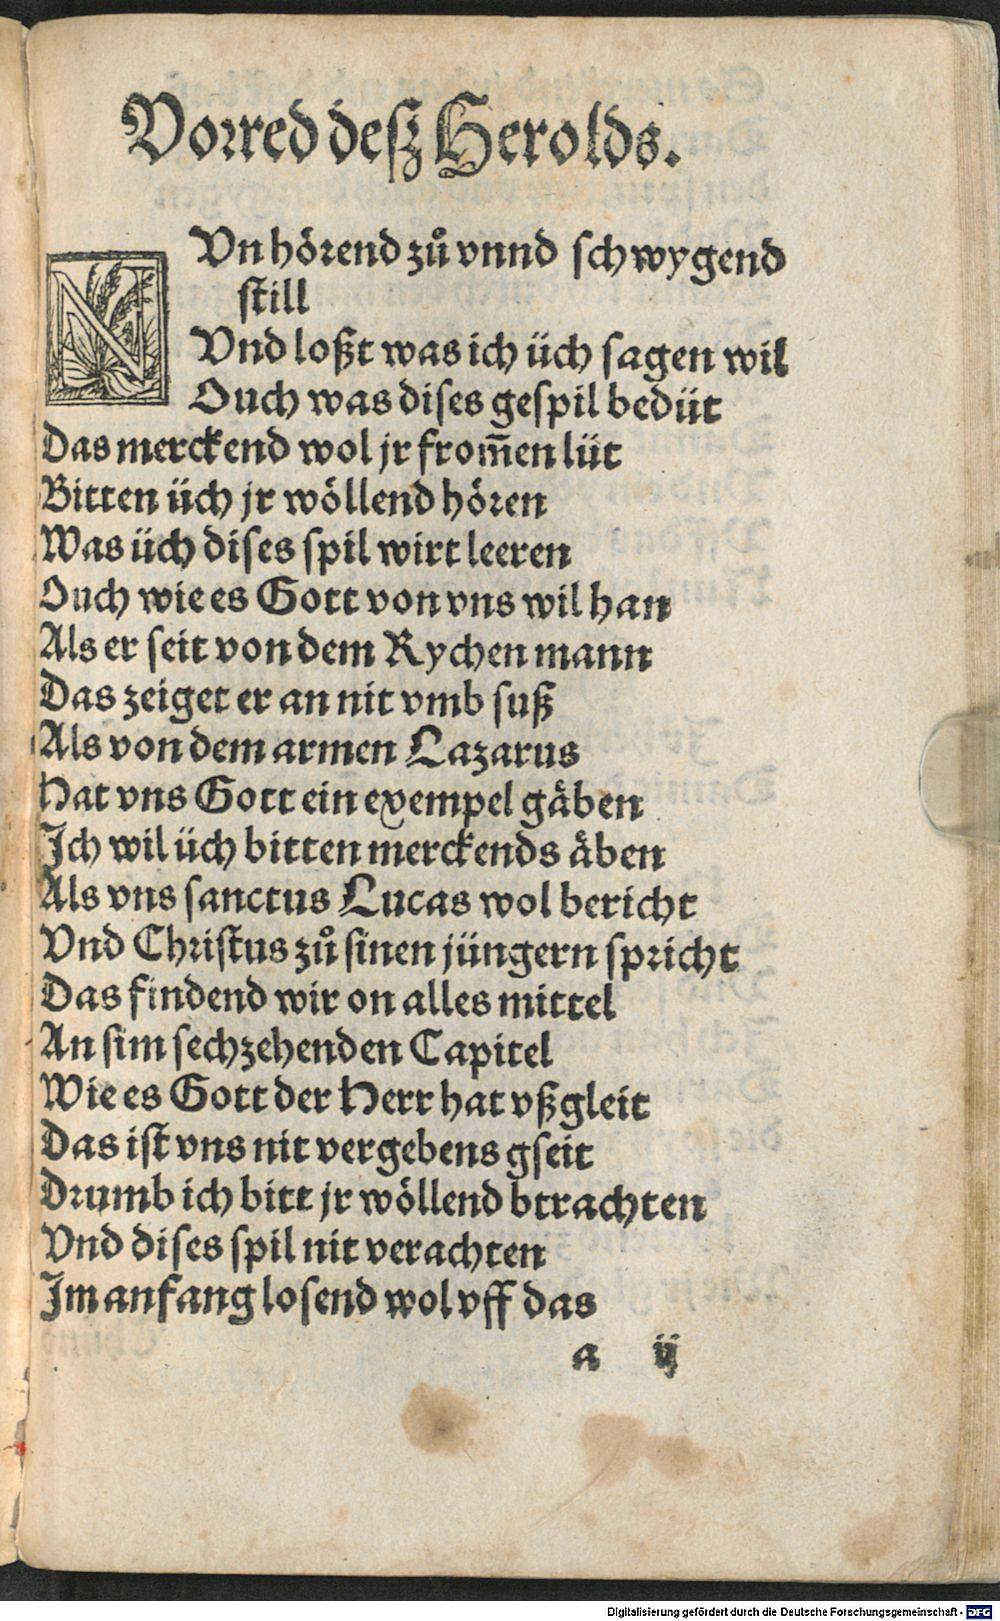 Vorred deſz Herolds.
NVn hörend zů vnnd ſchwygend
ſtill
Vnd loßt was ich üch ſagen wil
Ouch was diſes geſpil bedüt
Das merckend wol jr from̄en lüt
Bitten üch jr wöllend hören
Was üch diſes ſpil wirt leeren
Ouch wie es Gott von vns wil han
Als er ſeit von dem Rychen mann
Das zeiget er an nit vmb ſuß
Als von dem armen Lazarus
Hat vns Gott ein exempel gäben
Ich wil üch bitten merckends äben
Als vns ſanctus Lucas wol bericht
Vnd Chriſtus zů ſinen jüngern ſpricht
Das findend wir on alles mittel
An ſim ſechzehenden Capitel
Wie es Gott der Herr hat vßgleit
Das iſt vns nit vergebens gſeit
Drumb ich bitt jr wöllend btrachten
Vnd diſes ſpil nit verachten
Im anfang loſend wol vff das
a ij
Digitalisierung gefördert durch die Deutsche Forschungsgemeinschaft - DFG